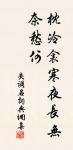 枕冷衾寒夜長無
奈愁何
失調名詞與調集